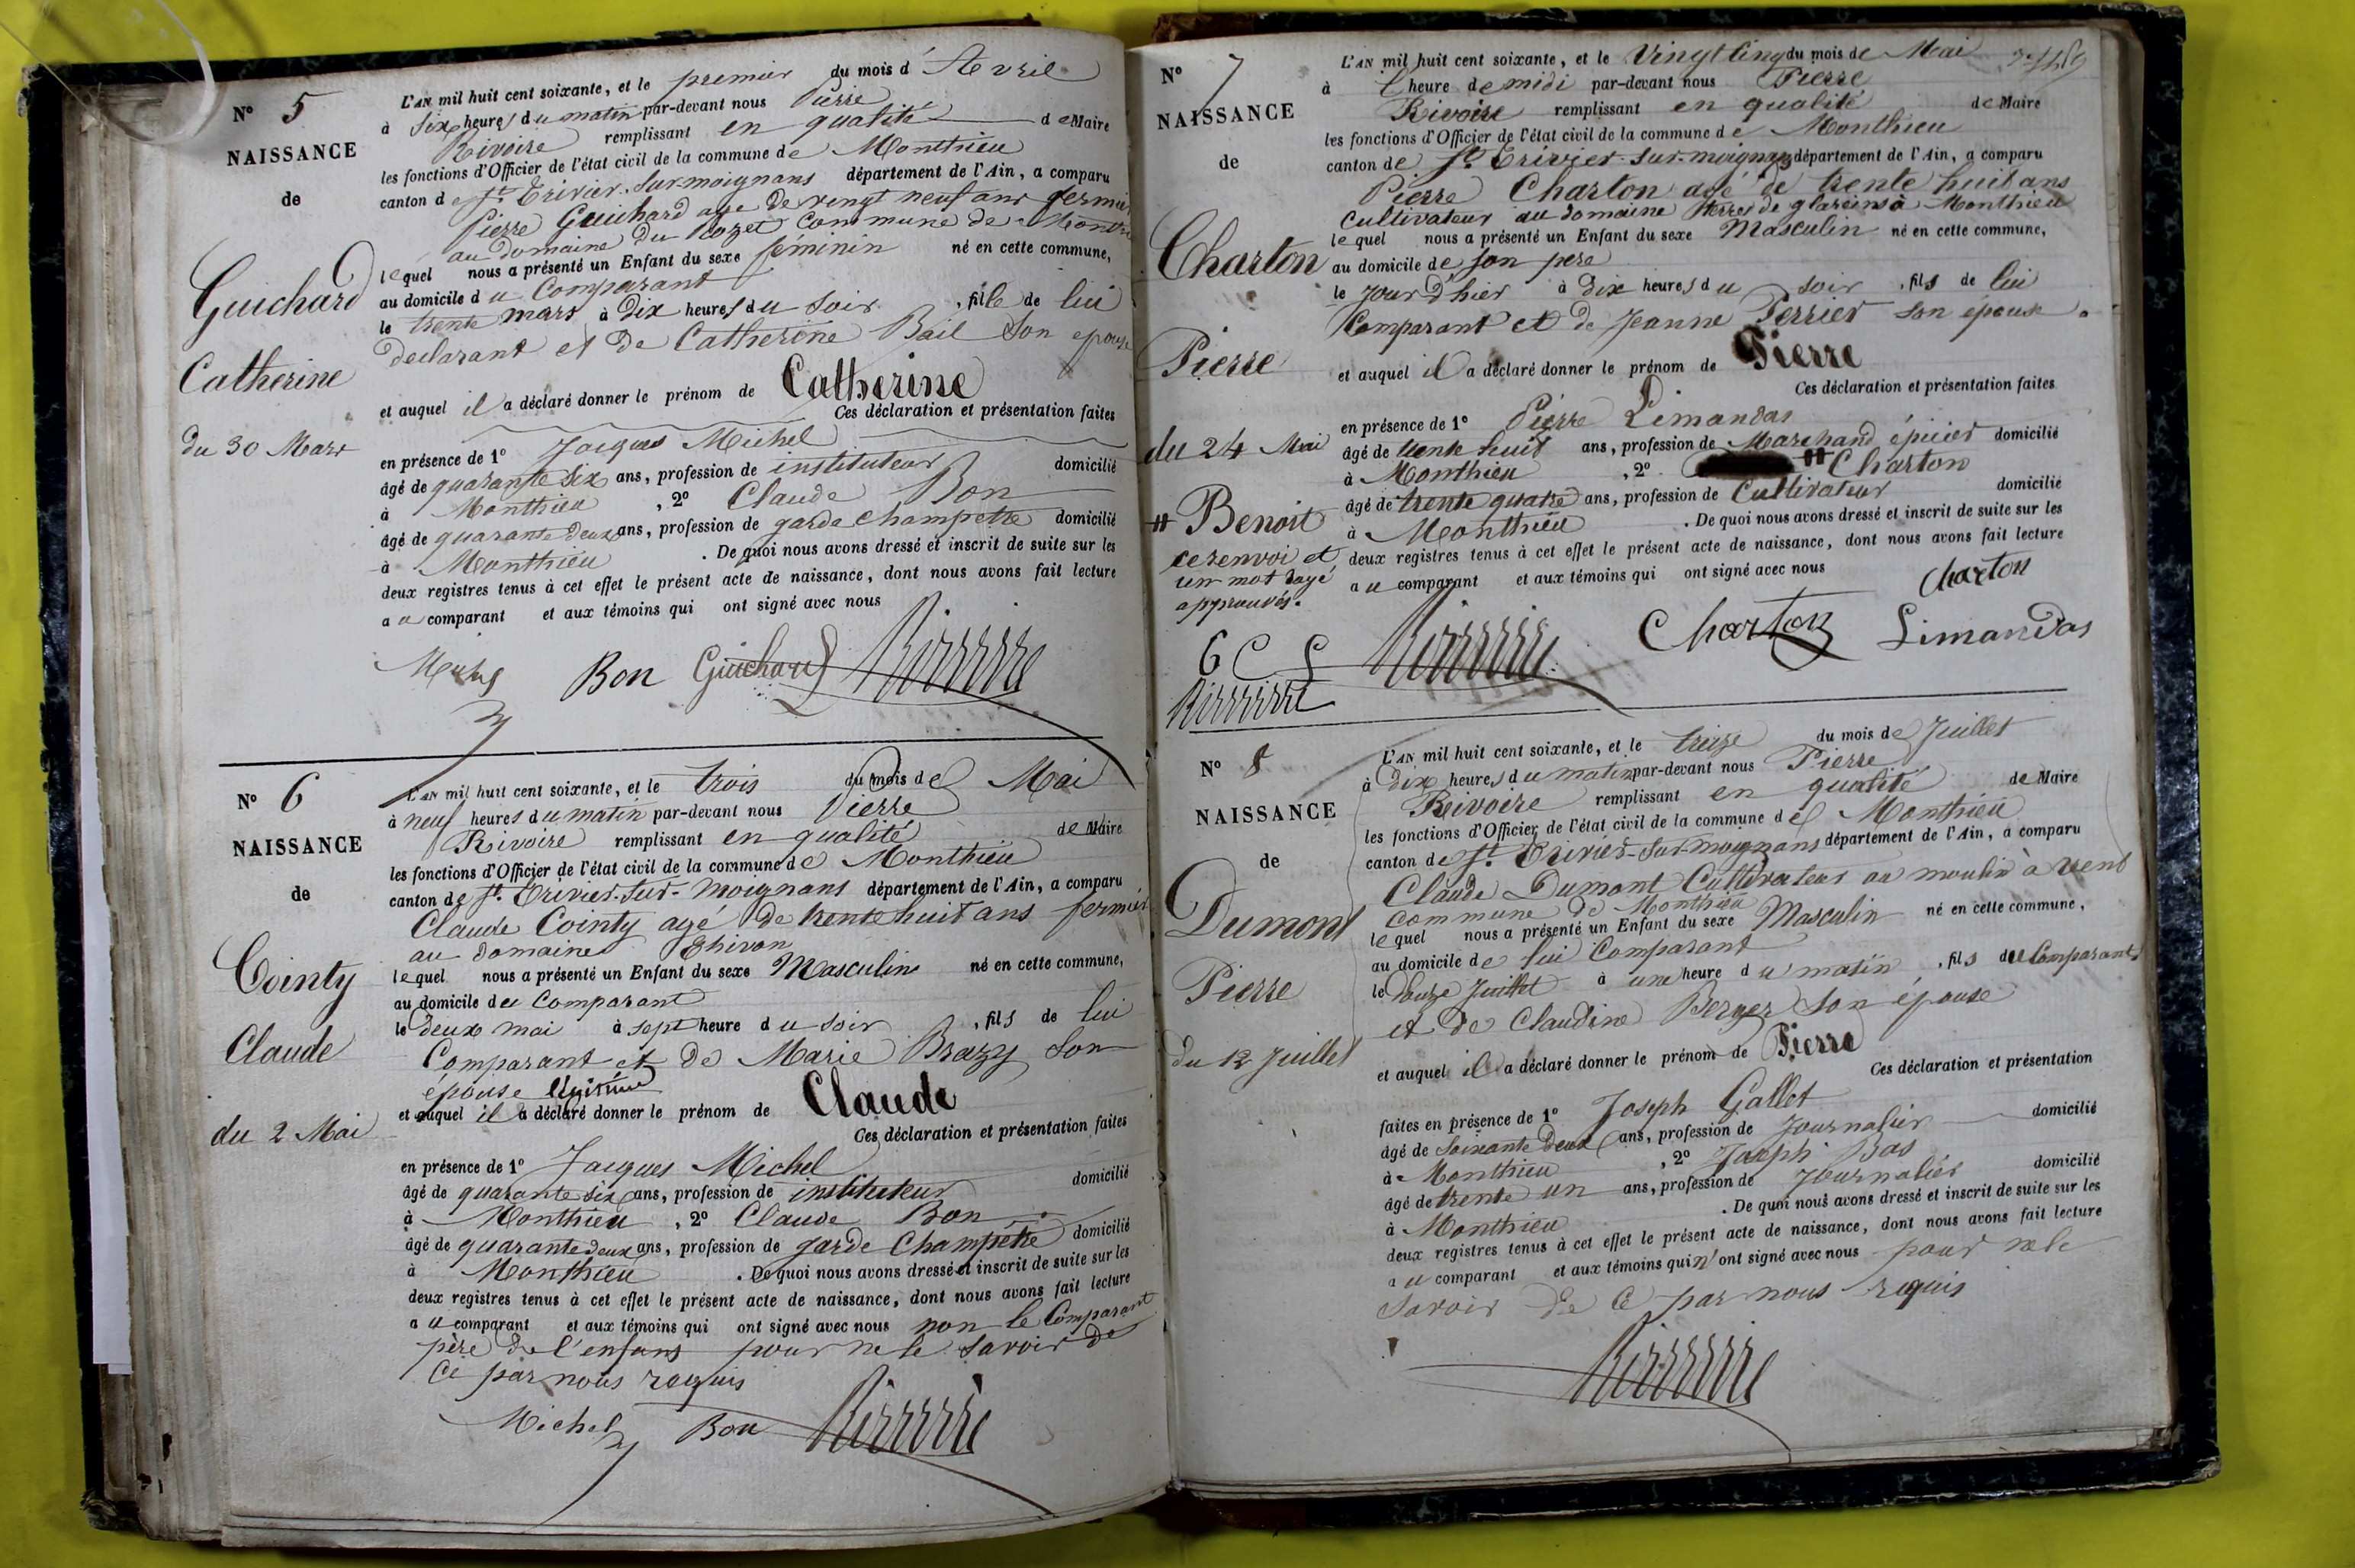 N° 5
NAISSANCE
de
Guichard
Catherine
du 30 Mars
L'AN mil huit cent soixante, et le premier du mois d'Avril
à six heures du matin par-devant nous Pierre
Rivoire remplissant en qualité de Maire
les fonctions d'Officier de l'état civil de la commune de Monthieu
canton de St Trivier-sur-moignans département de l'Ain, a comparu
Pierre Guichard age de vingt neuf ans fermier
au domaine du commune de
lequel nous a présenté un Enfant du sexe feminin né en cette commune,
au domicile du Comparant
le trente mars à dix heures du soir, fille de lui
declarant et de Catherine Bail son epouse
et auquel il a déclaré donner le prénom de Catherine
Ces déclaration et présentation faites
en présence de 1° Jacques Michel
âgé de quarante six ans, profession de instituteur domicilié
à Monthieu, 2° Claude Bon
âgé de quarante deux ans, profession de garde champetre domicilié
à Monthieu. De quoi nous avons dressé et inscrit de suite sur les
deux registres tenus à cet effet le présent acte de naissance, dont nous avons fait lecture
au comparant et aux témoins qui ont signé avec nous
Bon Guichard
N° 6
NAISSANCE
de
Cointy
Claude
du 2 Mai
L'AN mil huit cent soixante, et le trois du mois de Mai
à neuf heures du matin par-devant nous Pierre
Rivoire remplissant en qualité de Maire
les fonctions d'Officier de l'état civil de la commune de Monthieu
canton de St Trivier-sur-moignans département de l'Ain, a comparu
Claude Cointy agé de trente huit ans fermier
au domaine
lequel nous a présenté un Enfant du sexe Masculin né en cette commune,
au domicile du Comparant
le deux mai à sept heure du soir, fils de lui
Comparant et de Marie Brazy son
épouse légitime
et auquel il a déclaré donner le prénom de Claude
Ces déclaration et présentation faites
en présence de 1° Jacques Michel
âgé de quarante six ans, profession de instituteur domicilié
à Monthieu, 2° Claude Bon
âgé de quarante deux ans, profession de garde Champêtre domicilié
à Monthieu. De quoi nous avons dressé et inscrit de suite sur les
deux registres tenus à cet effet le présent acte de naissance, dont nous avons fait lecture
au comparant et aux témoins qui ont signé avec nous non le Comparant
père de l'enfant pour ne le savoir de
ce par nous requis
Michel Bon
N° 7
NAISSANCE
de
Charton
Pierre
du 24 Mai
# Benoit
ce renvoi et
un mot rayé
approuvés.
L'AN mil huit cent soixante, et le Vingt Cinq du mois de Mai
à l'heure de midi par-devant nous Pierre
Rivoire remplissant en qualité de Maire
les fonctions d'Officier de l'état civil de la commune de Monthieu
canton de St Trivier-sur-moignans département de l'Ain, a comparu
Pierre Charton agé de trente huit ans
Cultivateur au domaine de glareins à Monthieu
lequel nous a présenté un Enfant du sexe Masculin né en cette commune,
au domicile de son pere
le jour d'hier à dix heures du soir, fils de lui
Comparant et de Jeanne Perrier son épouse.
et auquel il a déclaré donner le prénom de Pierre
Ces déclaration et présentation faites
en présence de 1° Pierre Limandas
âgé de trente huit ans, profession de Marchand épicier domicilié
à Monthieu, 2° # Charton
âgé de trente quatre ans, profession de Cultivateur domicilié
à Monthieu. De quoi nous avons dressé et inscrit de suite sur les
deux registres tenus à cet effet le présent acte de naissance, dont nous avons fait lecture
au comparant et aux témoins qui ont signé avec nous
Charton
Charton Limandas
N° 8
NAISSANCE
de
Dumont
Pierre
du 12 Juillet
L'AN mil huit cent soixante, et le treize du mois de Juillet
à dix heures du matin par-devant nous Pierre
Rivoire remplissant en qualité de Maire
les fonctions d'Officier de l'état civil de la commune de Monthieu
canton de St Trivier-sur-moignans département de l'Ain, a comparu
Claude Dumont Cultivateur au moulin à vent
commune de Monthieu
lequel nous a présenté un Enfant du sexe Masculin né en cette commune,
au domicile de lui Comparant
le douze Juillet à une heure du matin, fils du Comparant
et de Claudine Berger son épouse
et auquel il a déclaré donner le prénom de Pierre
Ces déclaration et présentation
faites en présence de 1° Joseph Gallet
âgé de soixante deux ans, profession de Journalier domicilié
à Monthieu, 2° Joseph Bas
âgé de trente un ans, profession de Journalier domicilié
à Monthieu. De quoi nous avons dressé et inscrit de suite sur les
deux registres tenus à cet effet le présent acte de naissance, dont nous avons fait lecture
au comparant et aux témoins qui n'ont signé avec nous pour ne le
savoir de ce par nous requis